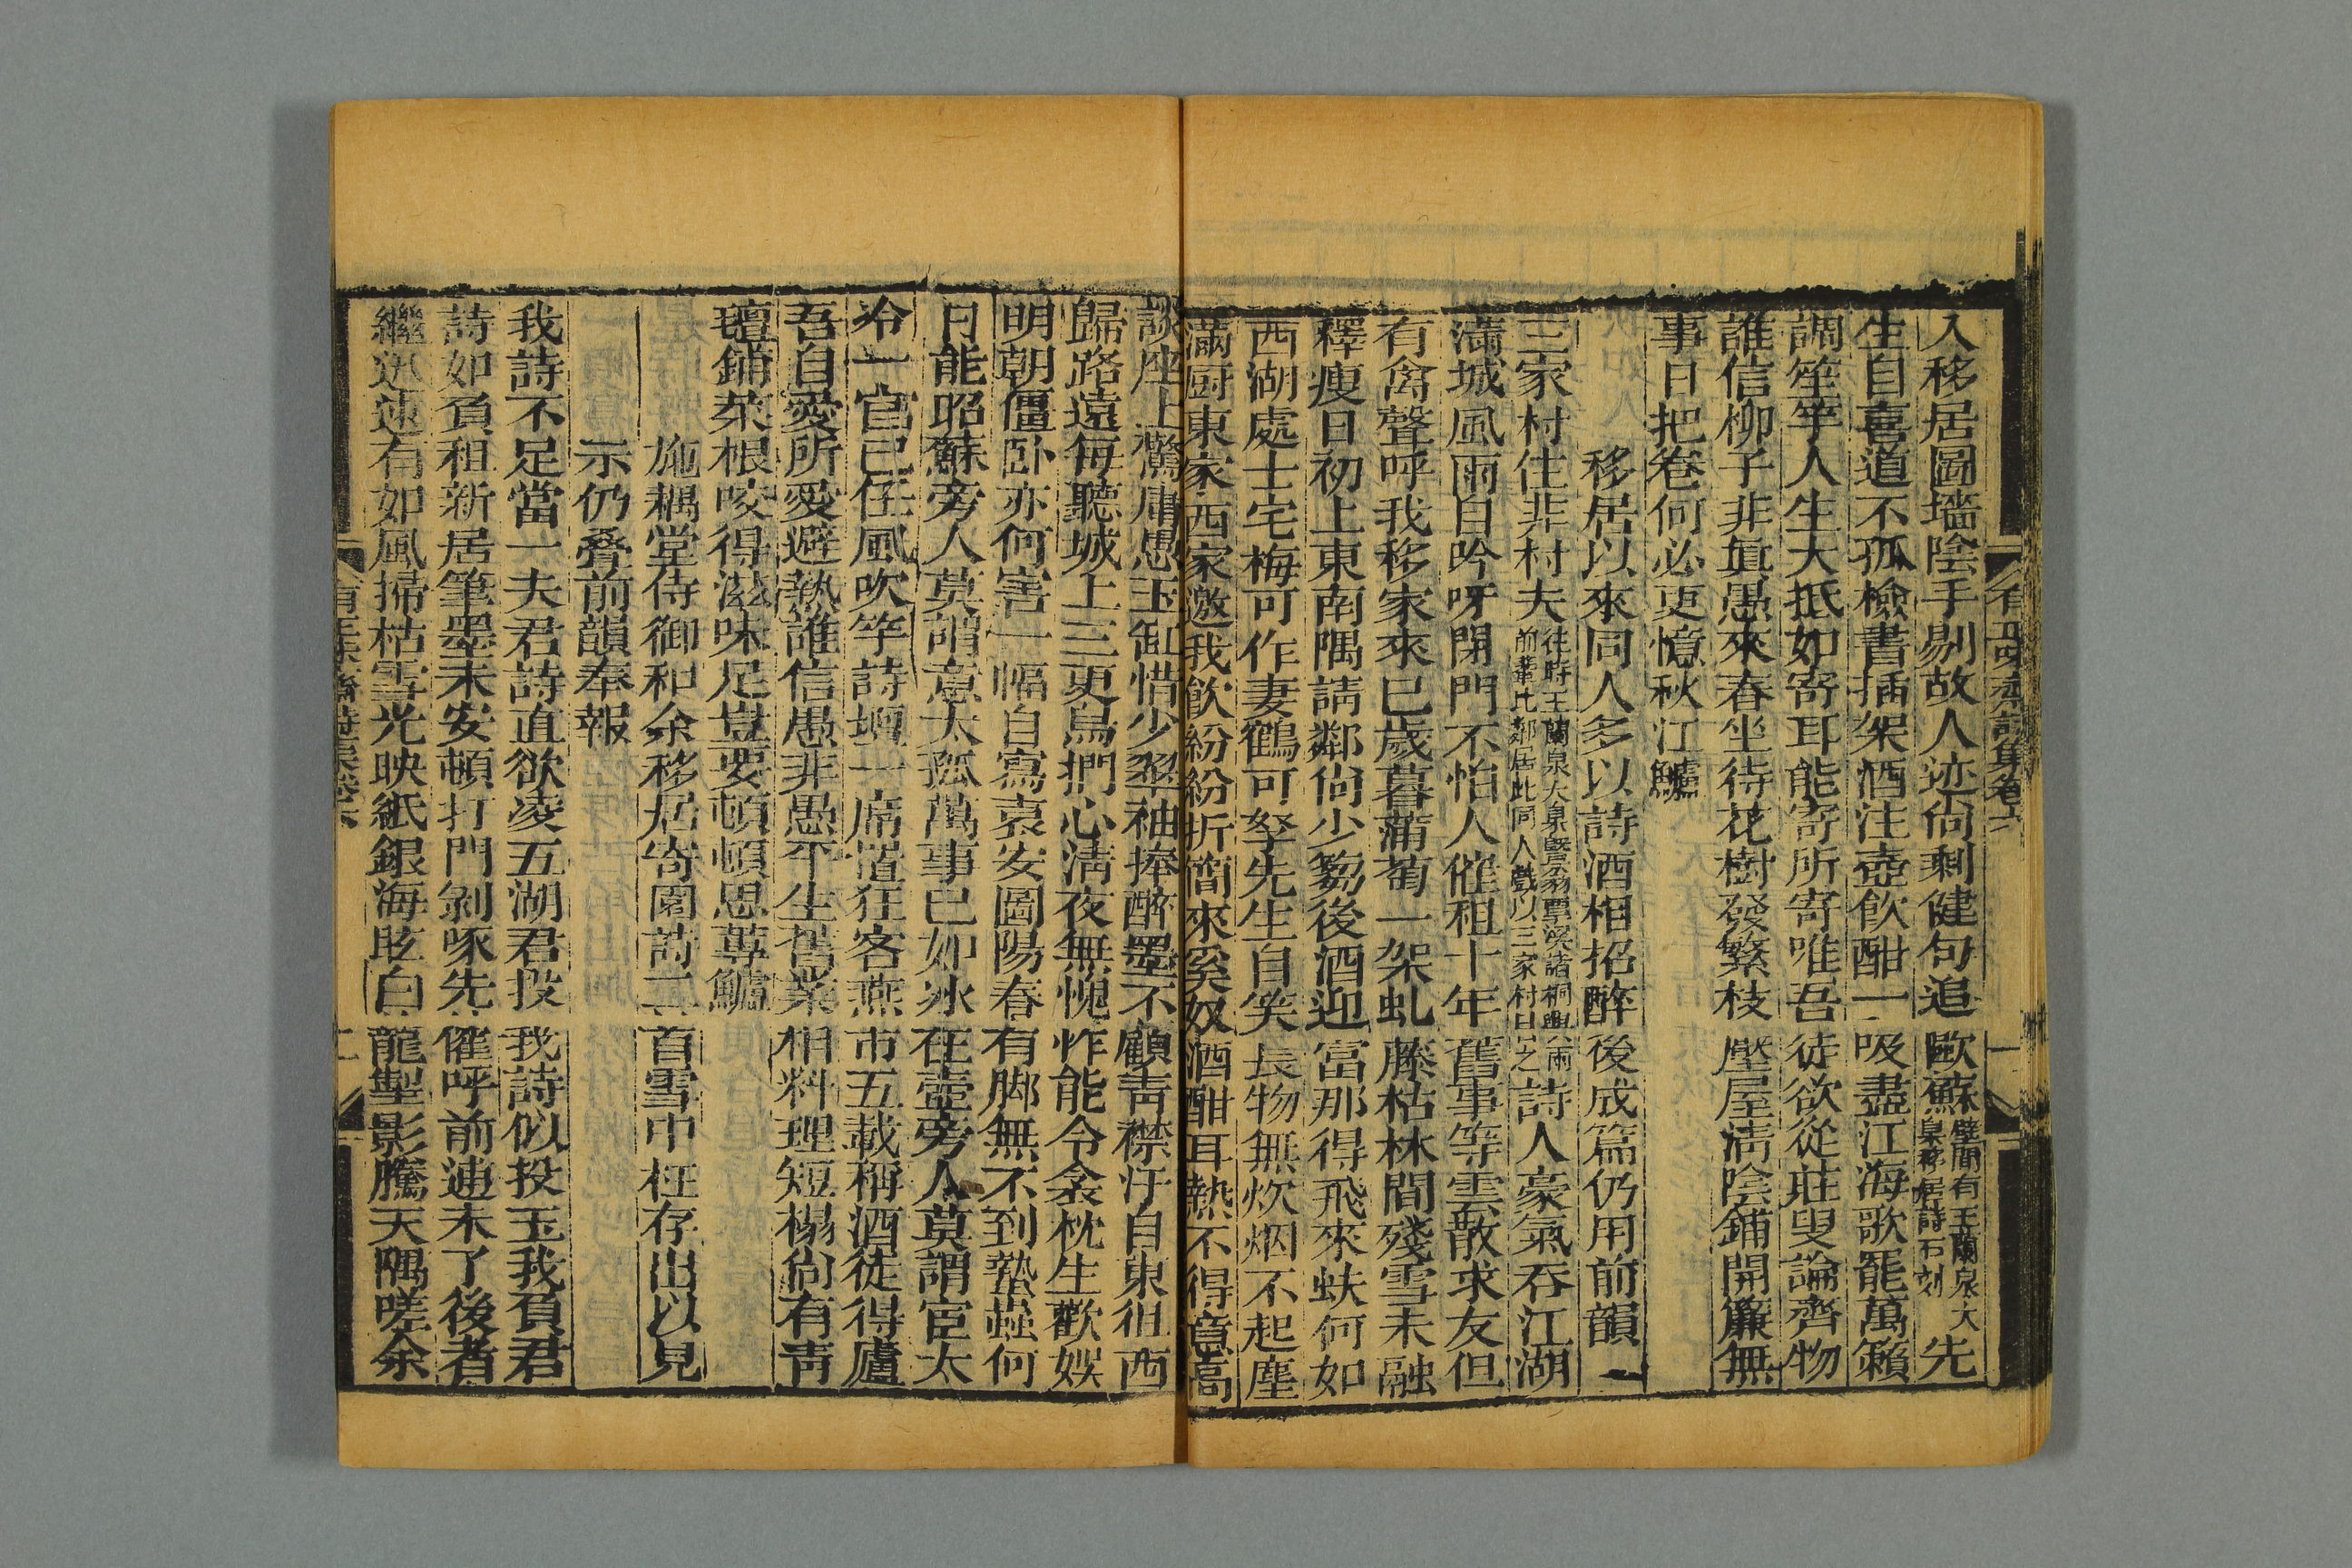 入移居圖墻陰手剔故人迹尙剩健句追歐蘇壁間有王蘭泉大臬移居詩石刻先
生自喜道不孤檢書插架酒注壺飲酣一吸盡江海歌罷萬籟
調笙竽人生大抵如寄耳能寄所寄唯吾徒欲從莊叟論齊物
誰信柳子非眞愚來春坐待花樹發繁枝壓屋淸陰鋪開簾無
事日把卷何必更憶秋江鱸
移居以來同人多以詩酒相招醉後成篇仍用前韻
三家村住非村夫往時王蘭泉大臬曁翁覃溪諸桐嶼兩前輩比鄰居此同人戲以三家村目之詩人豪氣吞江湖
滿城風雨自吟呀閉門不怕人催租十年舊事等雲散求友但
有禽聲呼我移家來已歲暮蒲萄一架虬藤枯林間殘雪未融
釋痩日初上東南隅請鄰尙少芻後酒迎富那得飛來蚨何如
西湖處士宅梅可作妻鶴可孥先生自笑長物無炊烟不起塵
滿厨東家西家邀我飮紛紛折簡來奚奴酒酣耳熱不得意高
談座上驚庸愚玉缸惜少翠袖捧醉墨不顧靑襟汙自東徂西
歸路遠每聽城上三更烏捫心淸夜無愧怍能令衾枕生歡娛
明朝僵卧亦何害一幅自寫袁安圖陽春有脚無不到蟄蟲何
日能昭蘇旁人莫謂意太孤萬事已如冰在壺旁人莫謂宦太
冷一官已任風吹竽詩壇一席慚狂客燕市五載稱酒徒得廬
吾自愛所愛避熱誰信愚非愚平生舊業相料理短榻尙有靑
氊鋪菜根咬得滋味足豈要頓頓思蓴鱸
施耦堂侍御和余移居寄園詩二首雪中枉存出以見
示仍叠前韻奉報
我詩不足當一夫君詩直欲凌五湖君投我詩似投玉我負君
詩如負租新居筆墨未安頓打門剝啄先催呼前逋未了後者
繼迅速有如風掃枯雪光映紙銀海眩白龍掣影騰天隅嗟余